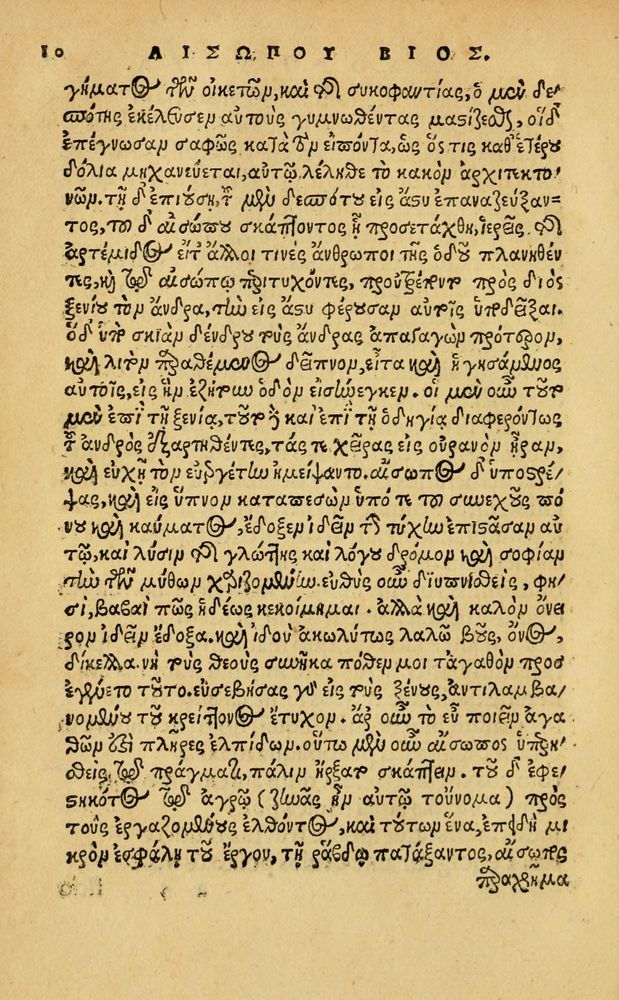 10 ΑΙΣΩΠΟΥ ΒΙΟΣ.
γήματος τῶν οἰκετῶν, καὶ τῆς συκοφαντίας, ὁ μὲν δε-
σπότης ἐκέλευσεν αὐτοὺς γυμνωθέντας μαστίζεσθαι, οἱ δ'
ἐπέγνωσαν σαφῶς κατὰ τὸν εἰπόντα, ὡς ὅς τις καθ' ἑτέρου
δόλια μηχανεύεται, αὑτῷ λέληθε τὸ κακὸν ἀρχιτεκτο-
νῶν. τῇ δ' ἐπιούσῃ, τοῦ μὲν δεσπότου εἰς ἄστυ ἐπαναζεύξαν-
τος, τοῦ δ' αἰσώπου σκάπτοντος ᾗ προσετάχθη, ἱερεῖς τῆς
ἀρτέμιδος εἴτ' ἄλλοι τινὲς ἄνθρωποι τῆς ὁδοῦ πλανηθέν
τες, καὶ τῷ αἰσώπῳ περιτυχόντες, προὔτρεπον πρὸς διὸς
ξενίου τὸν ἄνδρα, τὴν εἰς ἄστυ φέρουσαν αὐτοῖς ὑποδεῖξαι.
ὁ δ' ὑπὸ σκιὰν δένδρου τοὺς ἄνδρας ἀπαγαγὼν πρότερον,
καὶ λιτὸν παραθέμενος δεῖπνον, εἶτα καὶ ἡγησάμενος
αὐτοῖς, εἰς ἣν ἐζήτουν ὁδὸν εἰσήνεγκεν. οἱ μὲν οὖν τοῦτο
μὲν ἐπὶ τῇ ξενίᾳ, τοῦτο δὲ καὶ ἐπὶ τῇ ὁδηγίᾳ διαφερόντως
τοῦ ἀνδρὸς ἐξαρτηθέντες, τάς τε χεῖρας εἰς οὐρανὸν ἦραν,
καὶ εὐχῇ τὸν εὐεργέτην ἠμείψαντο. αἴσωπος δ' ὑποστρέ-
ψας, καὶ εἰς ὕπνον καταπεσὼν ὑπό τε τοῦ συνεχοῦς πό-
νου καὶ καύματος, ἔδοξεν ἰδεῖν τὴν τύχην ἐπιστᾶσαν αὐ
τῷ, καὶ λύσιν τῆς γλώττης καὶ λόγου δρόμον καὶ σοφίαν
τὴν τῶν μύθων χαριζομένην. εὐθὺς οὖν διϋπνισθεὶς, φη-
σὶ, βαβαὶ πῶς ἡδέως κεκοίμημαι. ἀλλὰ καὶ καλὸν ὄνει
ρον ἰδεῖν ἔδοξα. καὶ ἰδοὺ ἀκωλύτως λαλῶ βοῦς, ὄνος,
δίκελλα. νὴ τοὺς θεοὺς συνῆκα πόθεν μοι τἀγαθὸν προσ
εγένετο τοῦτο. εὐσεβήσας γὰρ εἰς τοὺς ξένους, ἀντιλαμβα-
νομένου τοῦ κρείττονος ἔτυχον. ἆρ' οὖν τὸ εὖ ποιεῖν ἀγα
θῶν ἐστὶ πλῆρες ἐλπίδων. οὕτω μὲν οὖν αἴσωπος ὑπερησ-
θεὶς τῷ πράγματι, πάλιν ἤρξατο σκάπτειν. τοῦ δ' ἐφε-
στηκότος τῷ ἀγρῷ (ζηνᾶς ἦν αὐτῷ τοὔνομα) πρὸς
τοὺς ἐργαζομένους ἐλθόντος, καὶ τούτων ἕνα, ἐπειδὴ μι
κρὸν ἐσφάλη τοῦ ἔργου, τῇ ῥάβδῳ πατάξαντος, αἴσωπος
παραχρῆμα